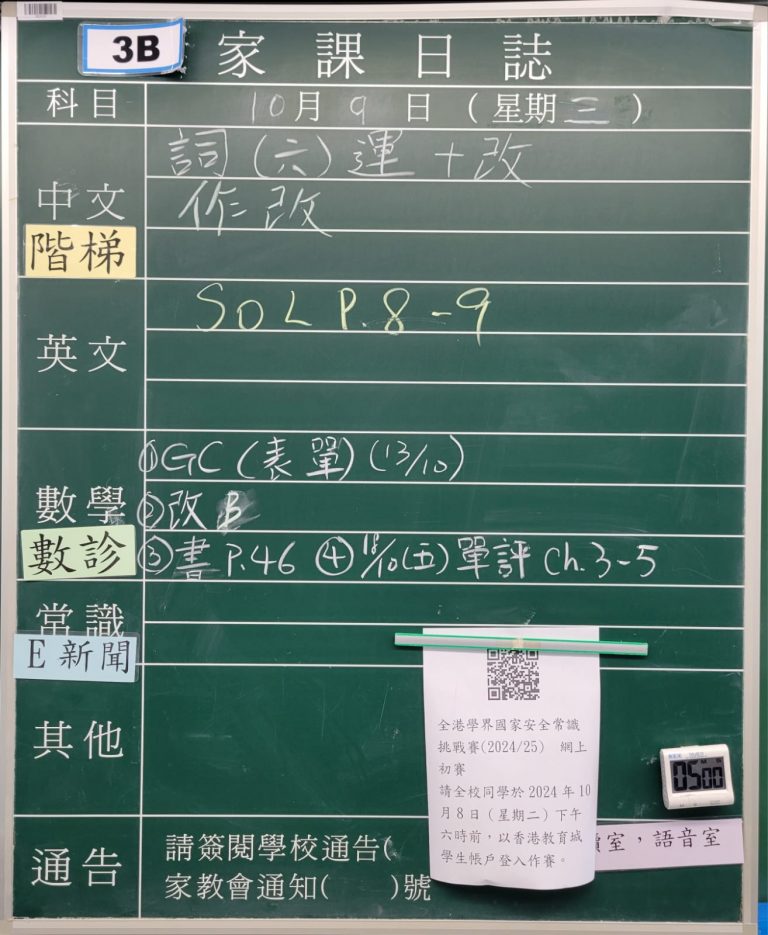 3B
家課日誌
科目 10月9日(星期三)
中文 詞(六)運+改
作改
階梯
英文 SOL P.8-9
數學 ①GC(表單)(13/10)
②改B
數診 ③書P.46 ④18/10(五)單評 Ch.3-5
常識
E新聞
其他
全港學界國家安全常識
挑戰賽(2024/25) 網上
初賽
請全校同學於2024年10
月8日(星期二)下午
六時前,以香港教育城
學生帳戶登入作賽。
05 00
室,語音室
通告 請簽閱學校通告(
家教會通知( )號